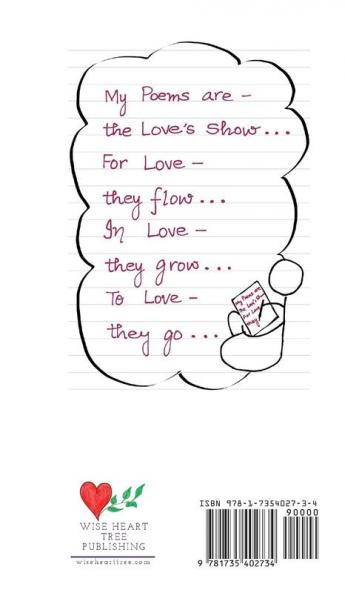 My Poems are –
the Love's Show...
For Love –
they flow...
In Love –
they grow...
To Love –
they go...
My Poems are
the Love's Sh
For Love
they
WISE HEART
TREE
PUBLISHING
wisehearttree.com
ISBN 978-1-7354027-3-4
90000
9 781735 402734